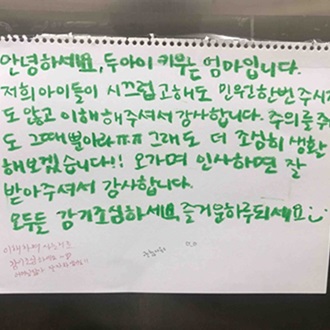 안녕하세요, 두아이 키우는 엄마입니다.
저희 아이들이 시끄럽고해도 민원한번 주시지
도 않고 이해해주셔서 감사합니다. 주의를주어
도 그때뿐이라ㅠㅠ 그래도 더 조심히 생활
해보겠습니다!! 오가며 인사하면 잘
받아주셔서 감사합니다.
모두들 감기조심하세요, 즐거운하루되세요